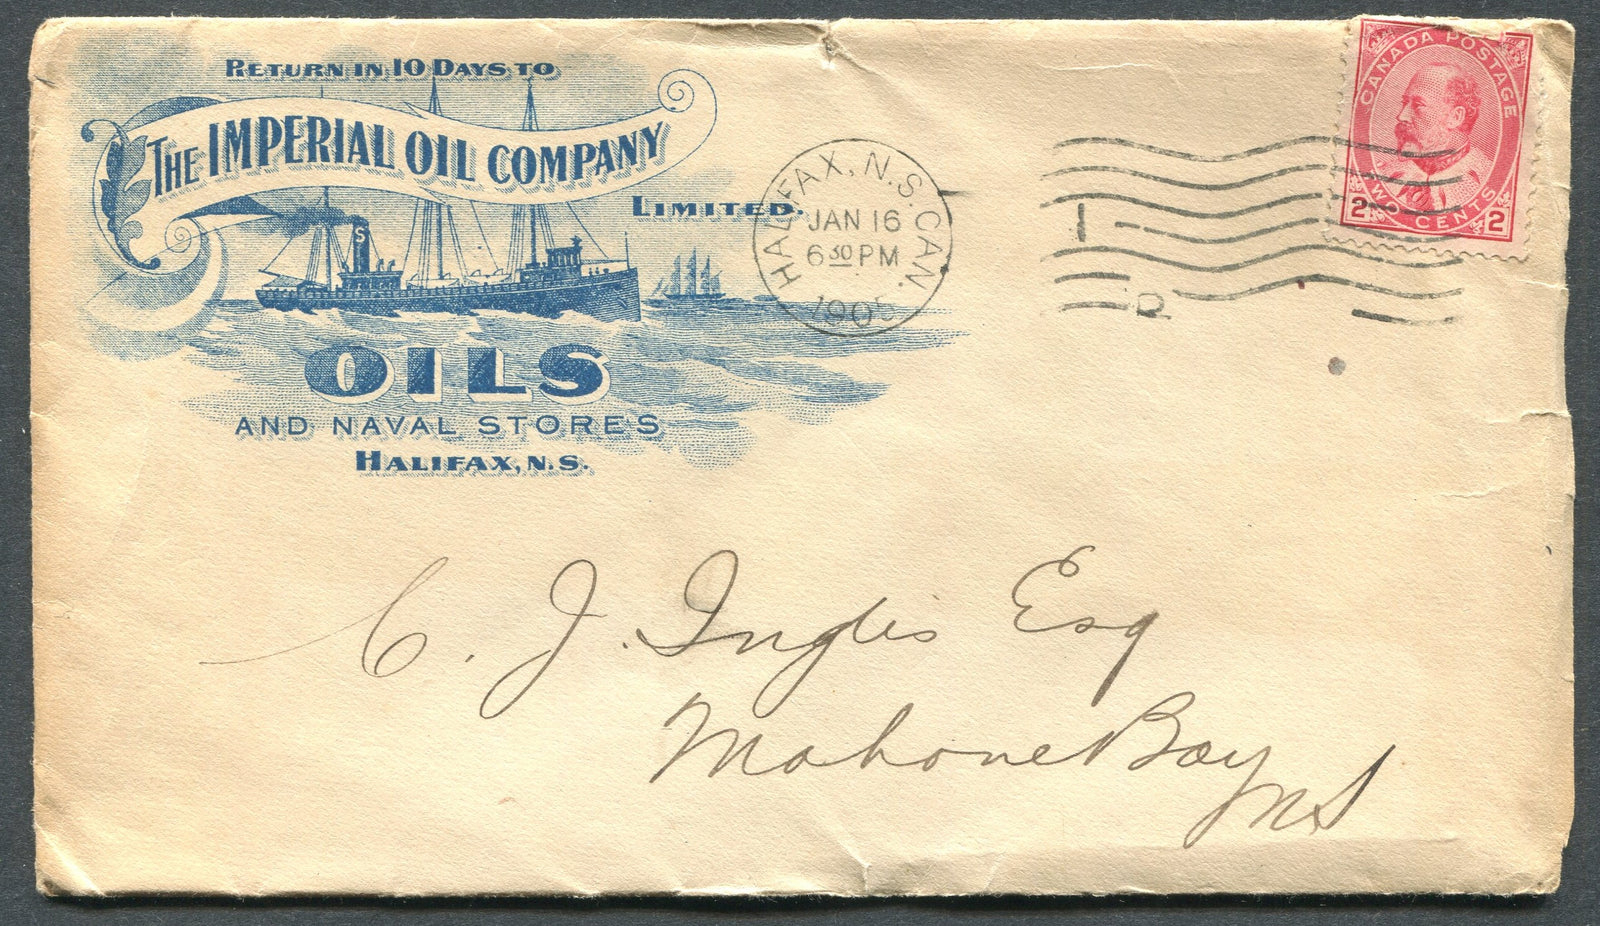 RETURN IN 10 DAYS TO
THE IMPERIAL OIL COMPANY
LIMITED.
S
OILS
AND NAVAL STORES
HALIFAX, N.S.
HALIFAX, N.S. CAN.
JAN 16
6 30 PM
1905
I
D
CANADA POSTAGE
2 TWO CENTS 2
C. J. Inglis Esq
Mahone Bay
N S